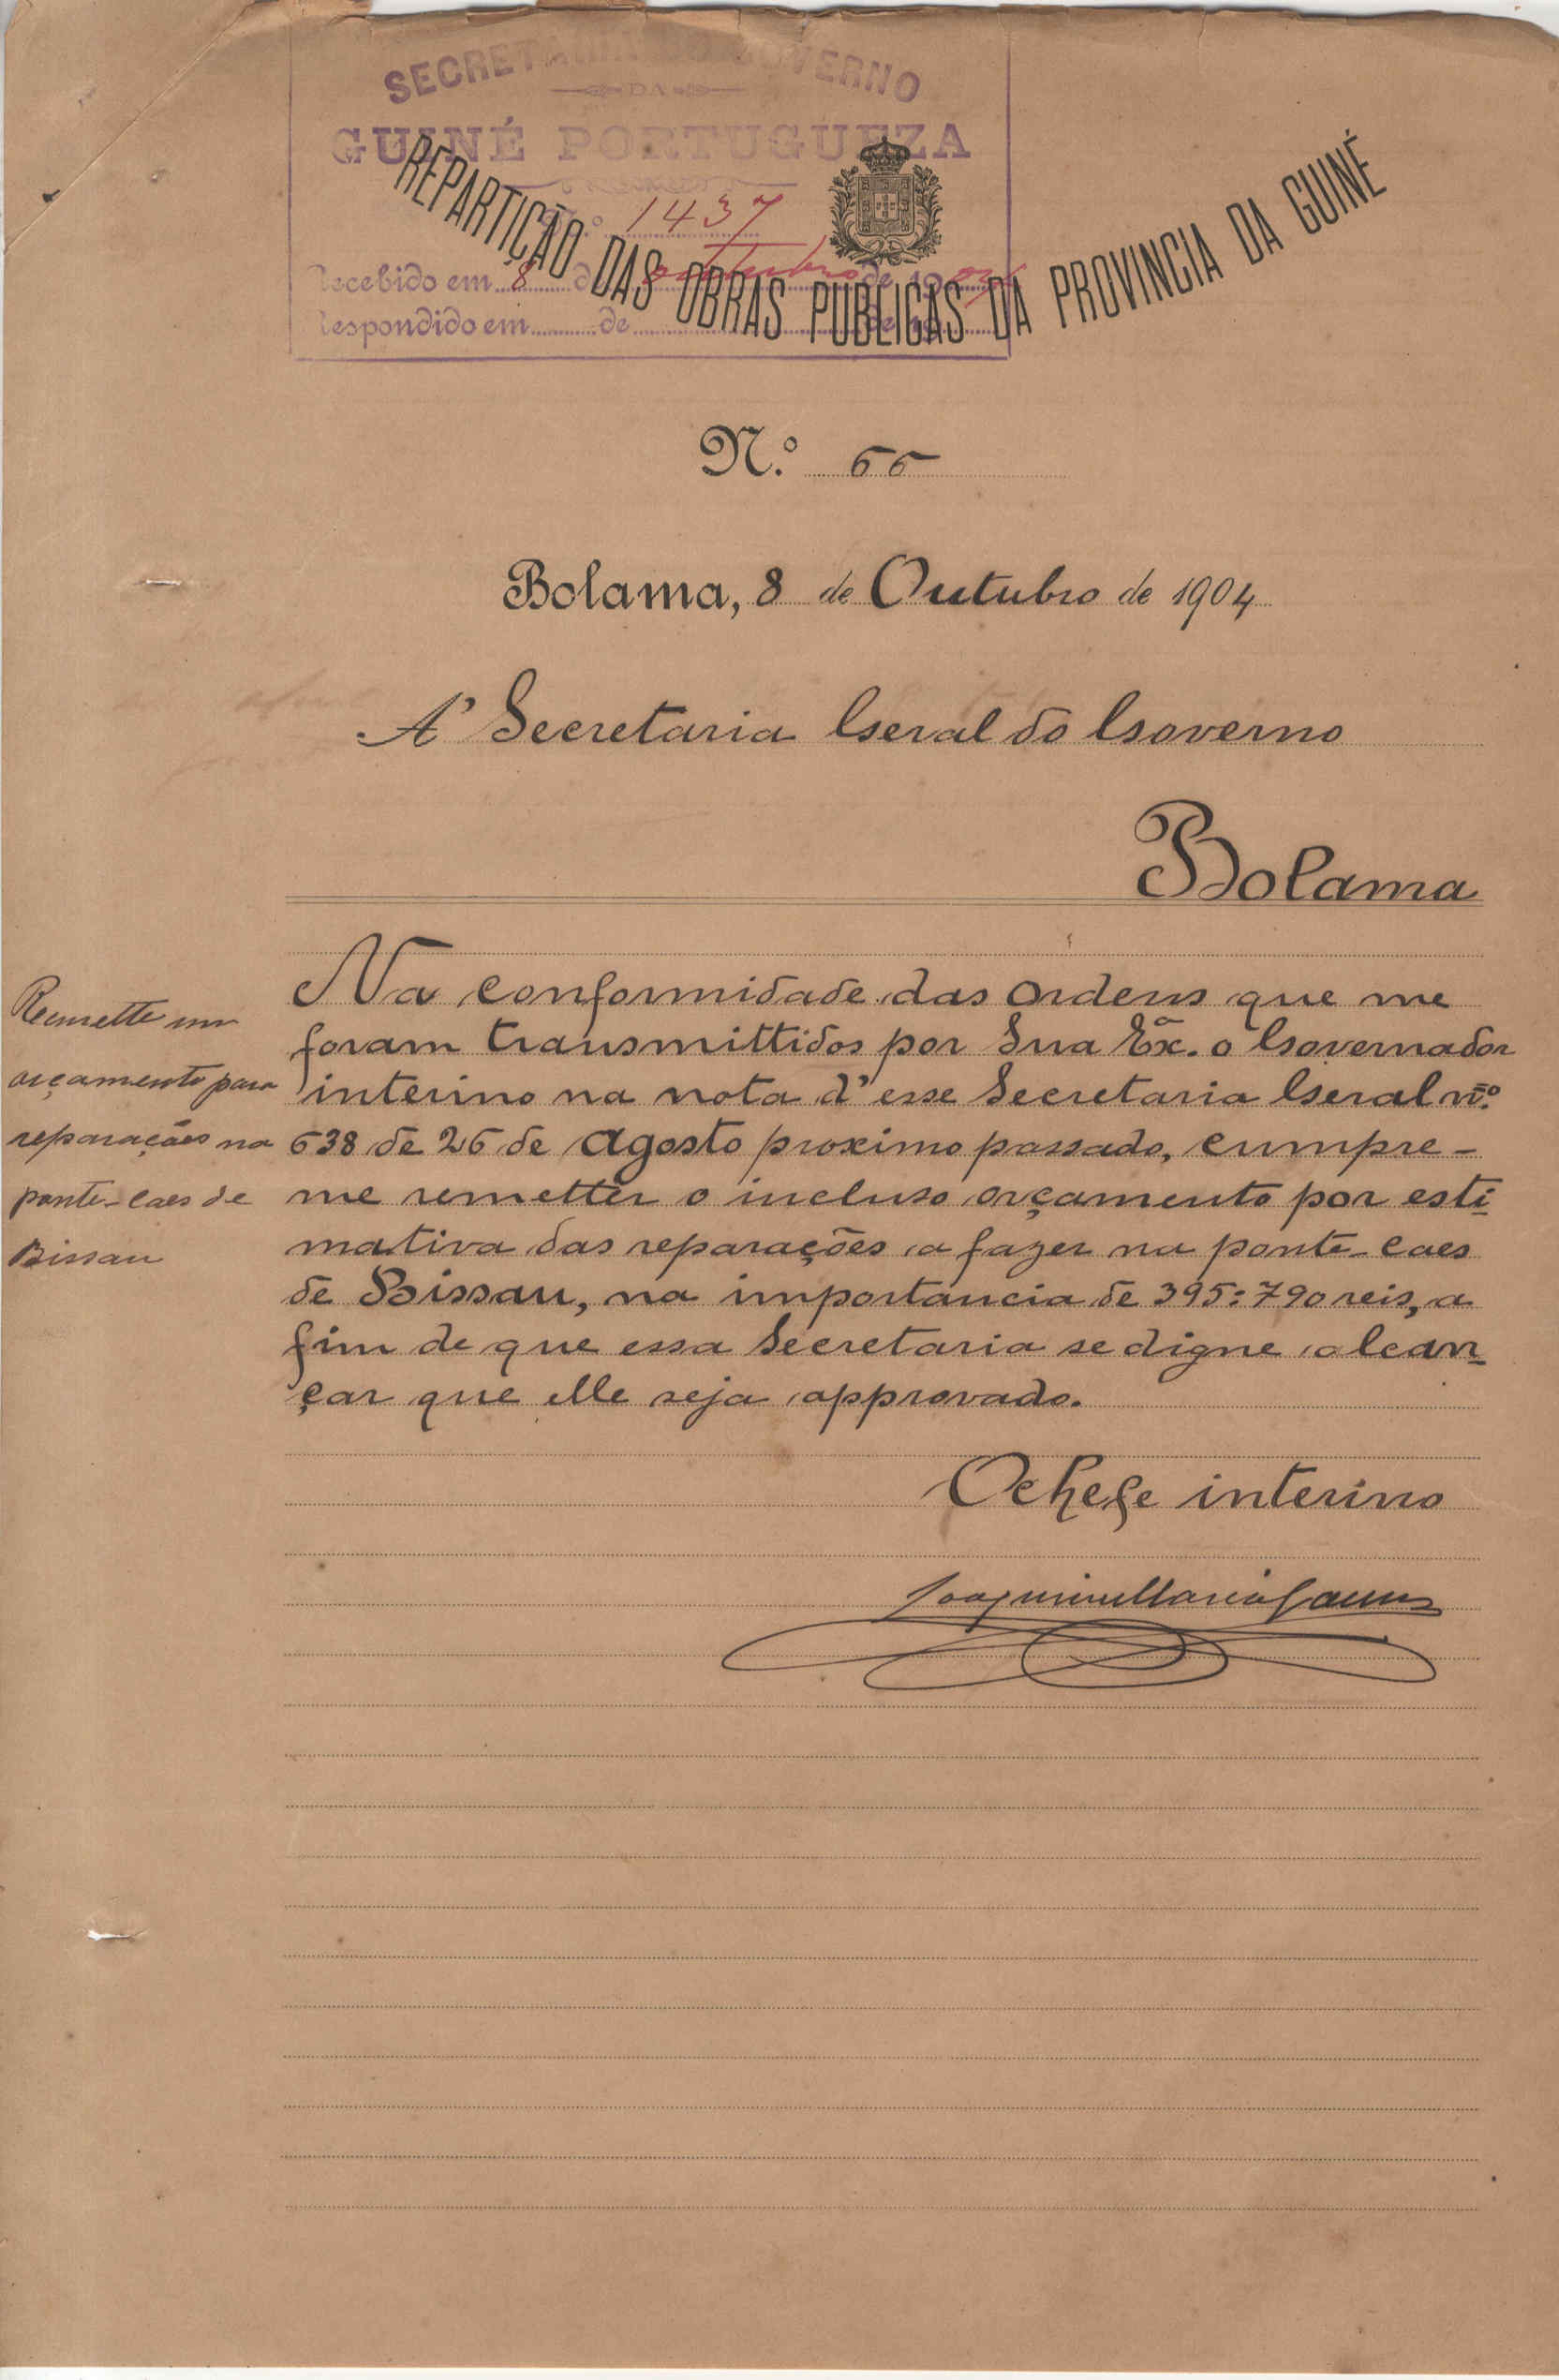 SECRETARIA DO GOVERNO
DA
GUINÉ PORTUGUEZA
N.º 1437
Recebido em 8 de outubro de 1904
Respondido em de de 19
REPARTIÇÃO DAS OBRAS PUBLICAS DA PROVINCIA DA GUINÉ
N.º 66
Bolama, 8 de Outubro de 1904
A' Secretaria Geral do Governo
Bolama
Remette um
orçamento para
reparações na
ponte-caes de
Bissau
Na conformidade das ordens que me
foram transmittidos por Sua Exª. o Governador
interino na nota d'esse Secretaria Geral nº.
638 de 26 de Agosto proximo passado, cumpre-
me remetter o incluso orçamento por esti-
mativa das reparações a fazer na ponte-caes
de Bissau, na importancia de 395:790 reis, a
fim de que essa Secretaria se digne alcan-
çar que elle seja approvado.
O chefe interino
Joaquim Maria